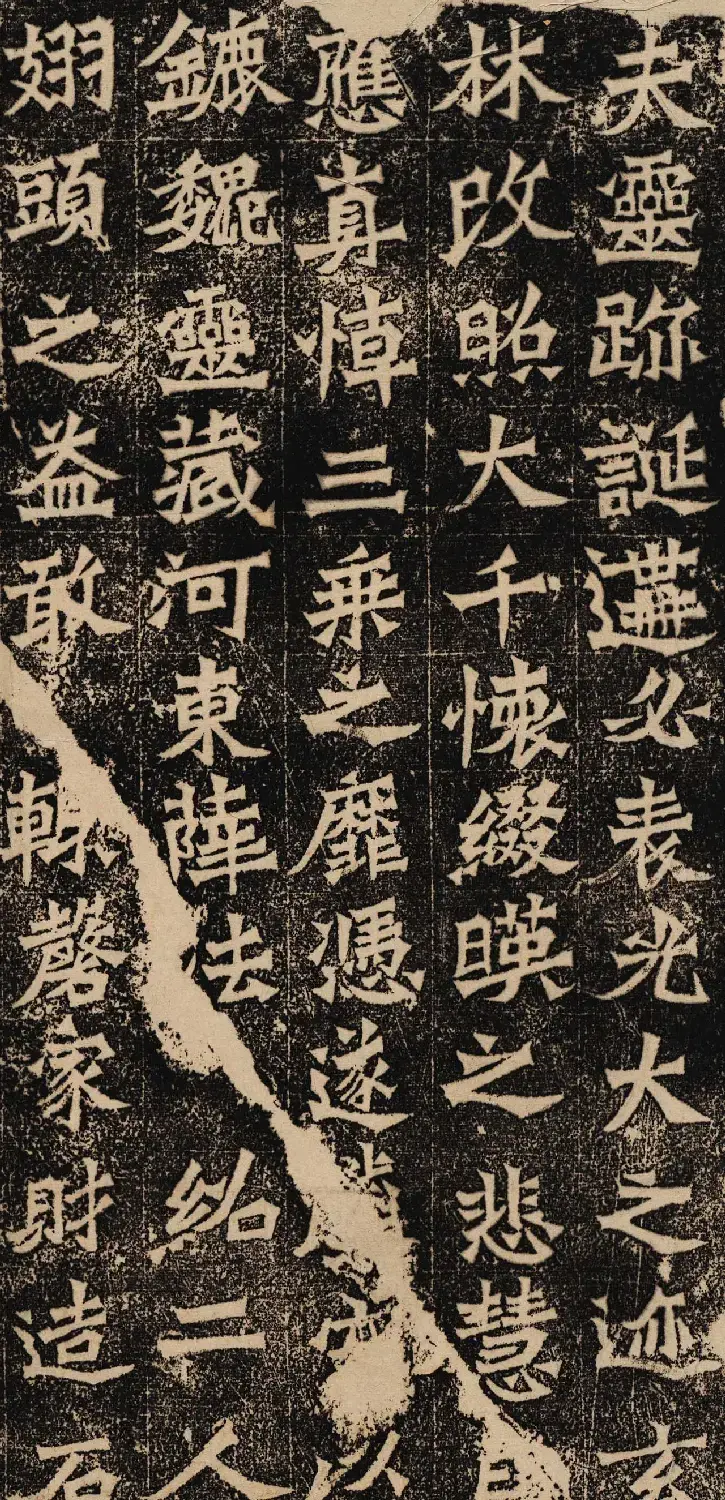 夫靈跡誕遘必表光大之迹玄
林改照大千懷綴暎之悲慧日
應真悼三乗之靡憑遂空以
鏕魏靈藏河東薛法紹二人
翅頭之益敢輒罄家財造石